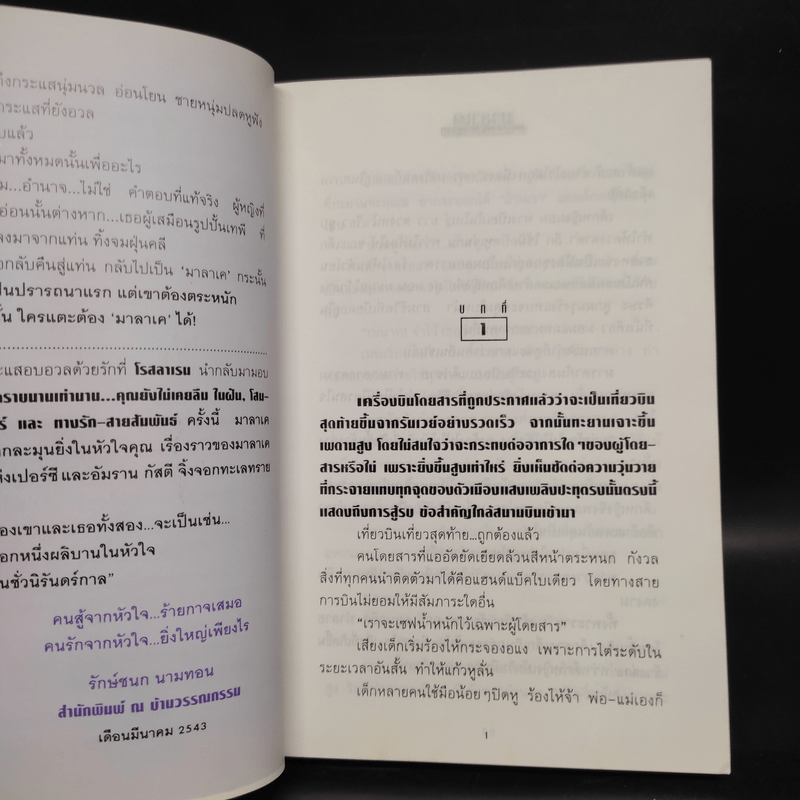 ถึงกระแสนุ่มนวล อ่อนโยน ชายหนุ่มปลดหูฟัง
กระแสที่ยังอวล
บแล้ว
มาทั้งหมดนั้นเพื่ออะไร
ม...อำนาจ...ไม่ใช่ คำตอบที่แท้จริง ผู้หญิงที่
อ่อนนั้นต่างหาก...เธอผู้เสมือนรูปปั้นเทพี ที่
ลงมาจากแท่น ทิ้งจมฝุ่นคลี
อกลับคืนสู่แท่น กลับไปเป็น 'มาลาเค' กระนั้น
ป็นปรารถนาแรก แต่เขาต้องตระหนัก
ั้น ใครแตะต้อง 'มาลาเค' ได้!
ะแสอบอวลด้วยรักที่ โรสลาเรน นำกลับมามอบ
ตราบนานเท่านาน...คุณยังไม่เคยลืม ในฝัน, โสม-
ร์ และ ทางรัก-สายสัมพันธ์ ครั้งนี้ มาลาเค
กละมุนยิ่งในหัวใจคุณ เรื่องราวของมาลาเค
ห่งเปอร์ซี และอัมราน กัสตี จิ้งจอกทะเลทราย
องเขาและเธอทั้งสอง...จะเป็นเช่น...
อกหนึ่งผลิบานในหัวใจ
นชั่วนิรันดร์กาล"
คนสู้จากหัวใจ...ร้ายกาจเสมอ
คนรักจากหัวใจ...ยิ่งใหญ่เพียงไร
รักษ์ชนก นามทอน
สำนักพิมพ์ ณ บ้านวรรณกรรม
เดือนมีนาคม 2543
บทที่
1
เครื่องบินโดยสารที่ถูกประกาศแล้วว่าจะเป็นเที่ยวบิน
สุดท้ายขึ้นจากรันเวย์อย่างรวดเร็ว จากนั้นทะยานเจาะขึ้น
เพดานสูง โดยไม่สนใจว่าจะกระทบต่ออาการใดๆของผู้โดย-
สารหรือไม่ เพราะยิ่งขึ้นสูงเท่าไหร่ ยิ่งเห็นชัดต่อความวุ่นวาย
ที่กระจายแทบทุกจุดของตัวเมืองแสงเพลิงปะทุตรงนั้นตรงนี้
แสดงถึงการสู้รบ ข้อสำคัญใกล้สนามบินเข้ามา
เที่ยวบินเที่ยวสุดท้าย...ถูกต้องแล้ว
คนโดยสารที่แออัดยัดเยียดล้วนสีหน้าตระหนก กังวล
สิ่งที่ทุกคนนำติดตัวมาได้คือแฮนด์แบ็คใบเดียว โดยทางสาย
การบินไม่ยอมให้มีสัมภาระใดอื่น
"เราจะเซฟน้ำหนักไว้เฉพาะผู้โดยสาร"
เสียงเด็กเริ่มร้องไห้กระจองอแง เพราะการไต่ระดับใน
ระยะเวลาอันสั้น ทำให้แก้วหูลั่น
เด็กหลายคนใช้มือน้อยๆปิดหู ร้องไห้จ้า พ่อ-แม่เองก็
1